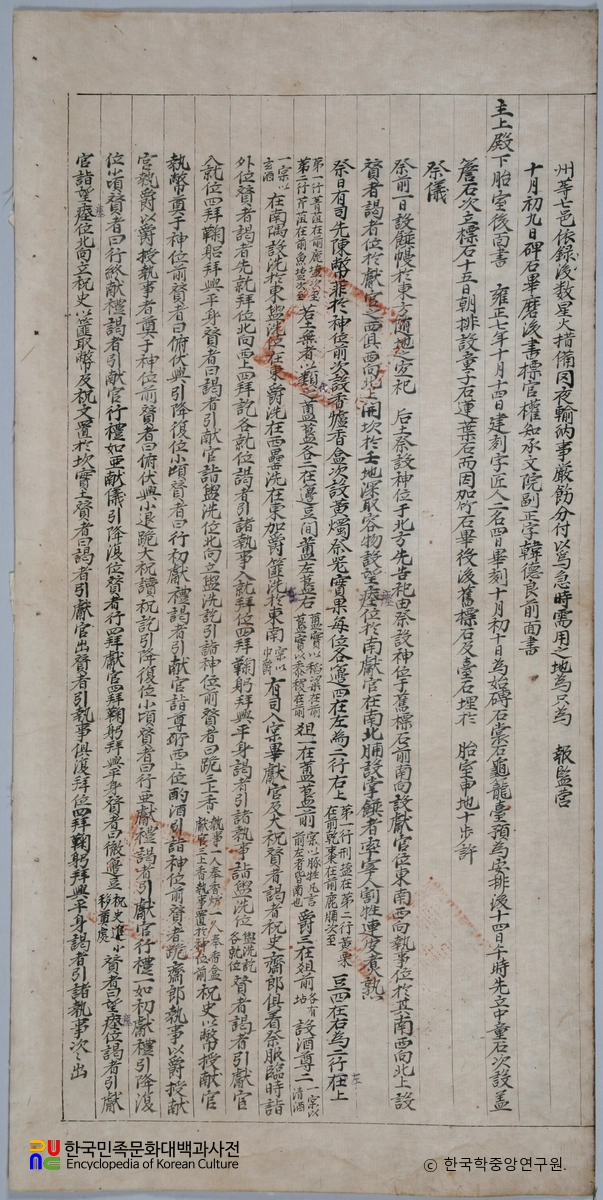 州等七邑依錄後数星火措備罔夜輸納事嚴飭分付以爲急時需用之地爲只爲 報監營
十月初九日碑石畢磨後書標官權知承文院副正字韓德良前面書
主上殿下胎室後面書 雍正七年十月十四日建刻字匠人二名四日畢刻十月初十日爲始磚石裳石龜籠臺預爲安排後十四日午時先立中童石次設盖
簷石次立標石十五日朝排設童子石連葉石而因加竹石畢役後舊標石及臺石埋於 胎室申地十步許
祭儀
祭前一日設饌幔於東方隨地之宜祀 后土祭設神位于北方先告祀由祭設神位于舊標石前南向設獻官位東南西向執事位於其南西向北上設
贊者謁者位於獻官之西俱西向北上開坎於壬地深取容物設望瘞位於南獻官在南北向設掌饌者率宰人割牲連皮煑熟
祭日有司先陳幣篚於神位前次設香爐香盒次設黃燭祭器實果每位各籩四在左爲二行右上 第一行刑塩在前 第二行黃栗在前乾棗 豆四在右爲二行左上
第一行菁菹在前鹿醢次至 第二行芹菹在前魚醢次至 若土無者以類 之簠簋各二在籩豆間簠左簋右 簠實以稻粱在前 簋實以黍稷在前 俎一在簠簋前 爵三在俎前 各有坫 設酒尊二 一宗以淸酒
一宗以玄酒 在南隅設洗於東盥洗位在東爵洗在西罍洗在東加爵篚洗於東南 有司入实畢獻官及大祝贊者謁者祝史齋郞俱著祭服臨時詣
外位贊者謁者先就拜位北向西上四拜訖各就位謁者引諸執事入就拜位四拜鞠躬拜興平身謁者引諸執事詣盥洗位 盥洗訖各就位 贊者謁者引獻官
入就位四拜鞠躬拜興平身贊者曰謁者引獻官詣盥洗位北向立盥洗訖引詣神位前贊者曰跪三上香 執事一人奉香炉一人奉香盒 献官三上香執事置於神位前 祝史以幣授獻官
執幣奠于神位前贊者曰俯伏興引降復位小頃贊者曰行初獻禮謁者引獻官詣尊所西上位酌酒引詣神位前贊者跪齋郞執事以爵授献
官執爵以爵授執事者奠于神位前贊者曰俯伏興小退跪大祝讀祝訖引降復位小頃贊者曰行亜獻禮謁者引獻官行禮一如初獻禮引降復
位小頃贊者曰行終獻禮謁者引獻官行禮如亜獻儀引降復位贊者行四拜獻官四拜鞠躬拜興平身贊者曰徹籩豆 祝史進小移奠處 贊者曰望瘞位謁者引獻
官詣望瘞位北向立祝史以篚取幣及祝文置於坎實土贊者曰謁者引獻官出贊者引執事俱復拜位四拜鞠躬拜興平身謁者引諸執事次〻出
한국민족문화대백과사전
Encyclopedia of Korean Culture
ⓒ 한국학중앙연구원.